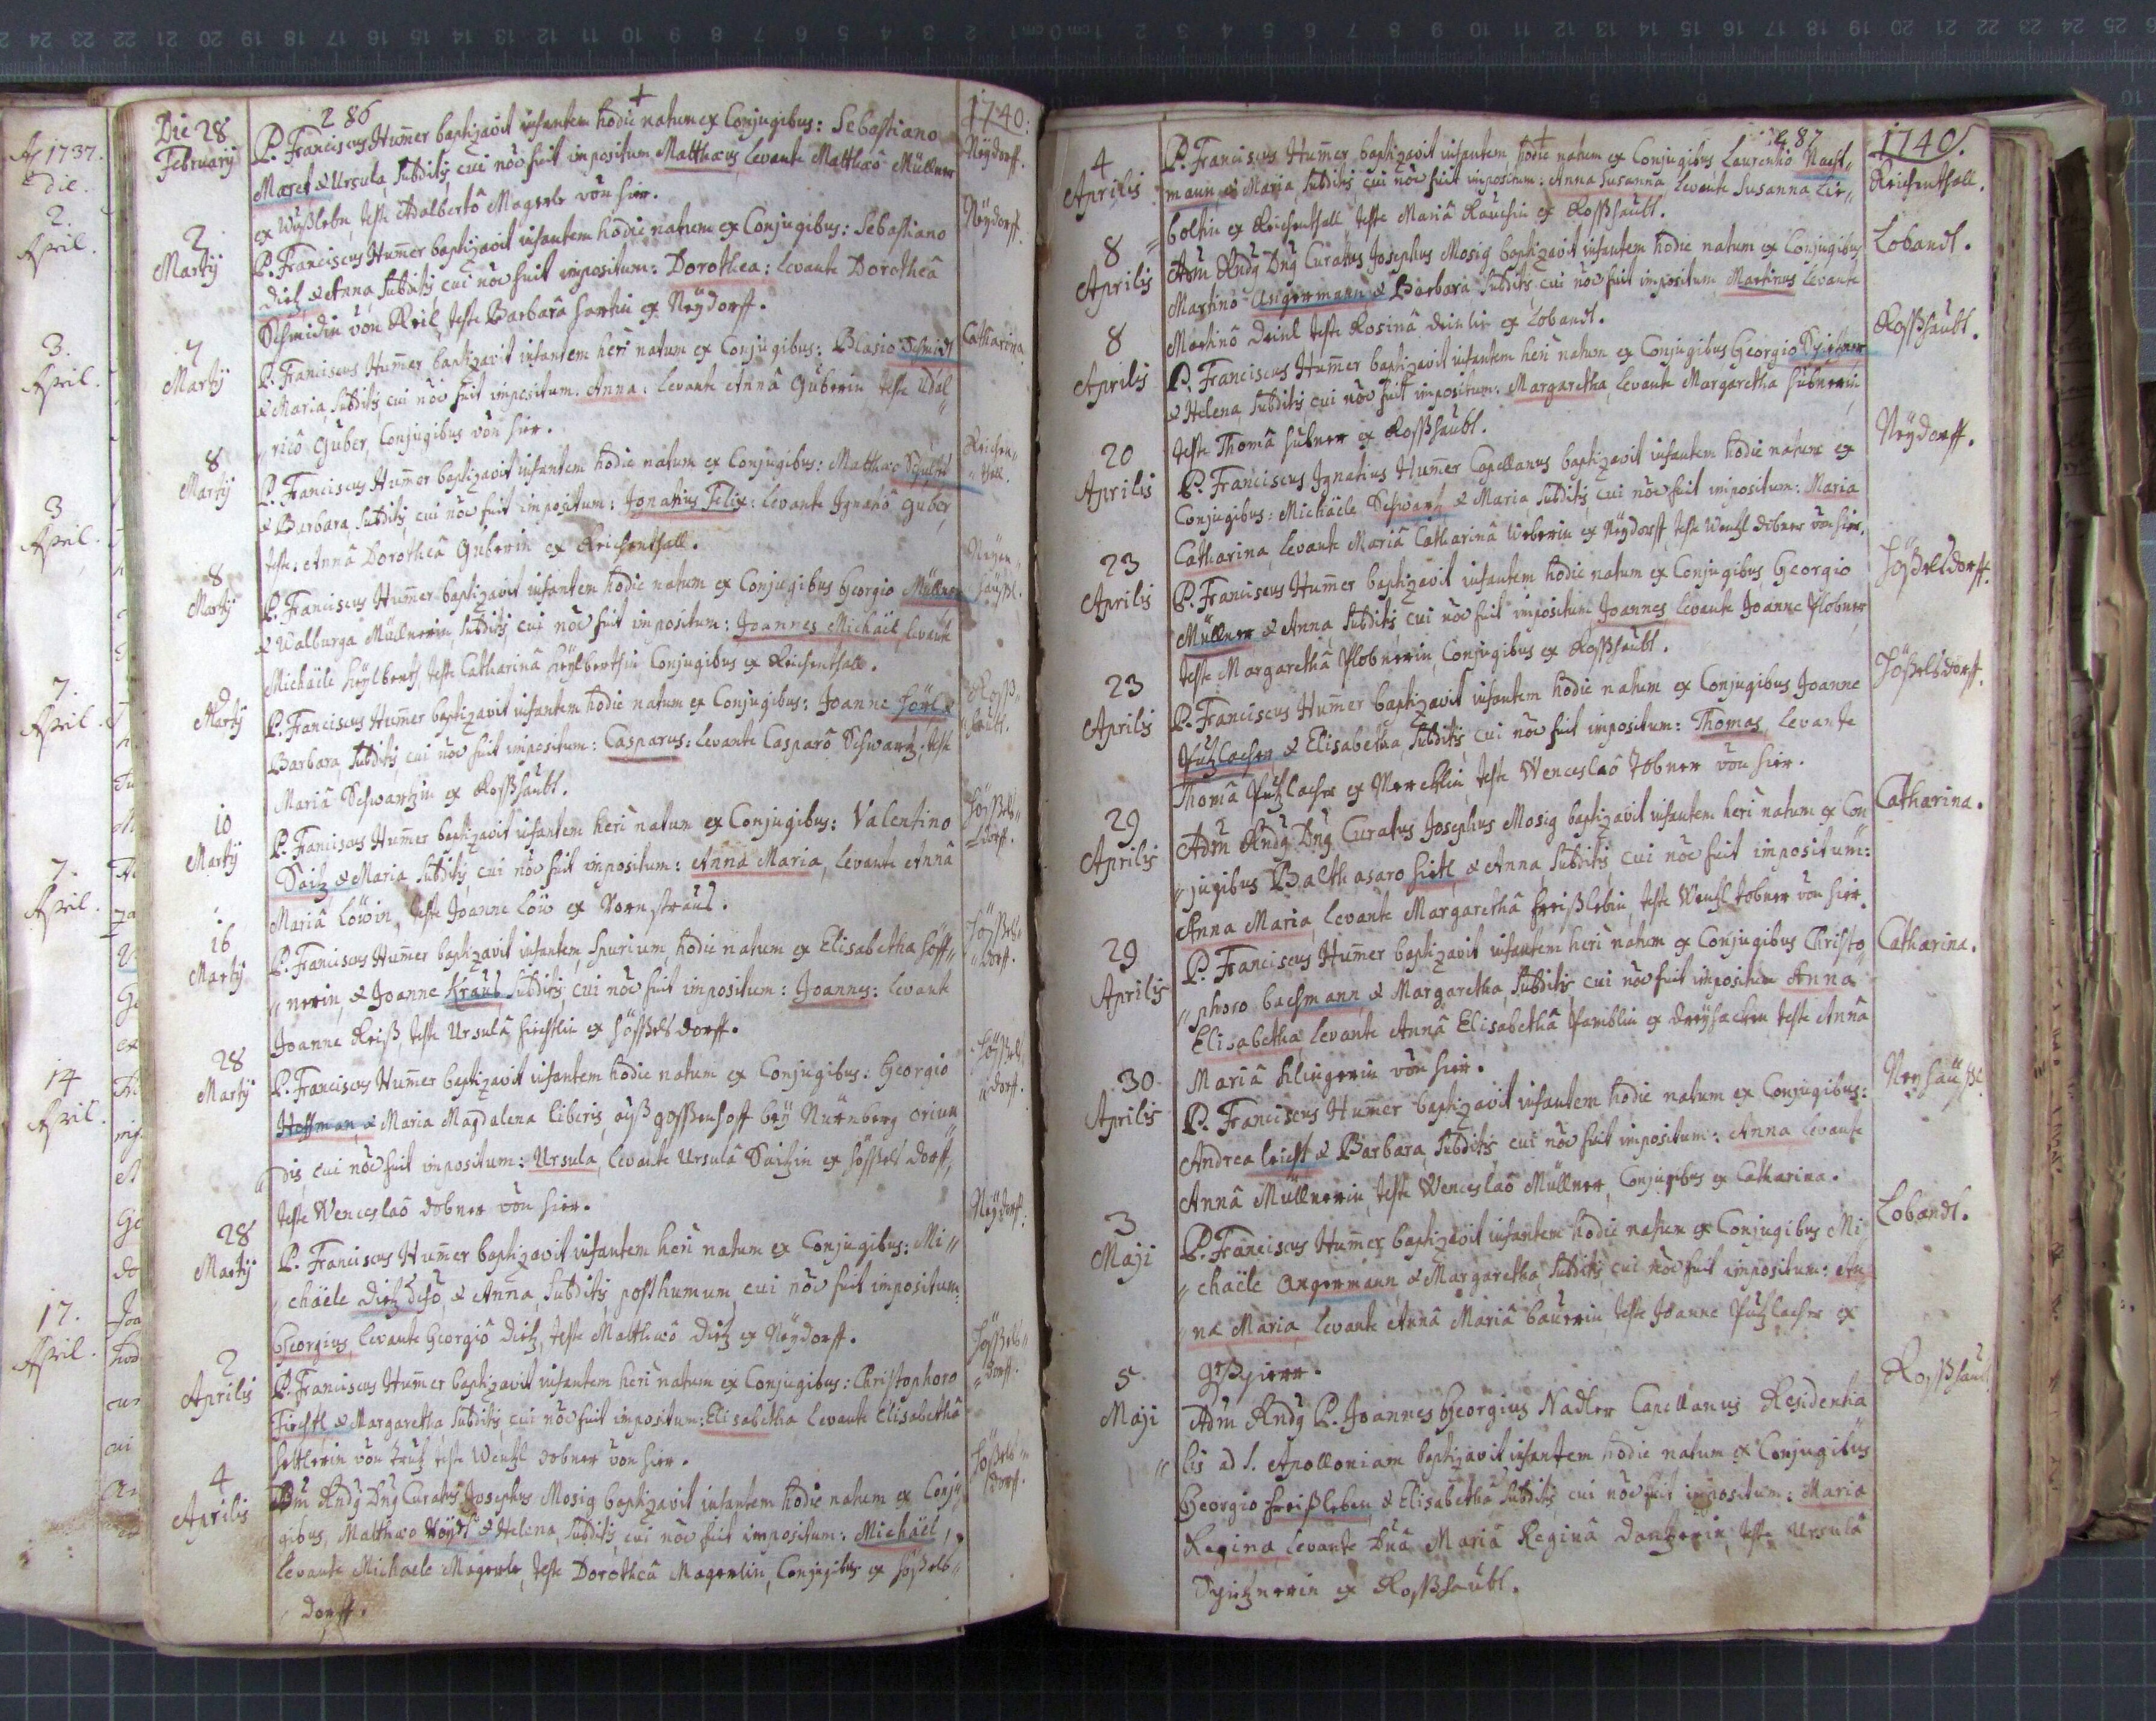 286
1740.
Die 28 Februarij
P. Franciscus Hum̄er baptizavit infantem hodie natum ex Conjugibus: Sebastiano
Neÿdorff.
& Ursula, subditis, cui nōe fuit impositum Matthæus, levante Matthæô Müllner
teste Adalbertô Magerle von hier.
2 Martij
P. Franciscus Hum̄er baptizavit infantem hodie natum ex Conjugibus: Sebastiano
Neÿdorff.
Dietz & Anna, subditis, cui nōe fuit impositum: Dorothea: levante Dorotheâ
Schmidin von Reil, teste Barbarâ Hartin ex Neÿdorff.
7 Martij
P. Franciscus Hum̄er baptizavit infantem heri natum ex Conjugibus: Blasio Schmidt
Catharina
& Maria, subditis, cui nōe fuit impositum. Anna: levante Annâ Guberin teste Udal
ricô Guber, Conjugibus von hier.
8 Martij
P. Franciscus Hum̄er baptizavit infantem hodie natum ex Conjugibus: Matthæo
Reichen„
„thall.
& Barbara, subditis, cui nōe fuit impositum: Ignatius Felix: levante Ignatiô Guber,
teste: Annâ Dorotheâ Guberin ex Reichenthall.
8 Martij
P. Franciscus Hum̄er baptizavit infantem hodie natum ex Conjugibus Georgio Müllner
& Walburga Müllnerin, subditis, cui nōe fuit impositum: Joannes Michäel, levante
Michäele Heÿlberth teste Catharinâ Heÿlberthin Conjugibus ex Reichenthall.
9 Martij
P. Franciscus Hum̄er baptizavit infantem hodie natum ex Conjugibus: Joanne Hörl &
Roßhaubt.
Barbara, subditis, cui nōe fuit impositum: Casparus: levante Casparô Schwartz, teste
Mariâ Schwartzin ex Roßhaubt.
10 Martij
P. Franciscus Hum̄er baptizavit infantem heri natum ex Conjugibus: Valentino
Hößels„
dorff.
Saitz & Maria, subditis, cui nōe fuit impositum: Anna Maria, levante Annâ
Mariâ Löwin, teste Joanne Löw ex Vornstrauß.
16 Martij
P. Franciscus Hum̄er baptizavit infantem, spurium, hodie natum ex Elisabetha Höff„
Hößels„
dorff.
„nerin, & Joanne Krauß subditis, cui nōe fuit impositum: Joannes: levante
Joanne Reiß, teste Ursulâ Hiechtlin ex Hößelsdorff.
28 Martij
P. Franciscus Hum̄er baptizavit infantem hodie natum ex Conjugibus: Georgio
Hößels„
dorff.
Hoffman, & Maria Magdalena liberis, auß Goßenhoff beÿ Nürnberg oriun
dis, cui nōe fuit impositum: Ursula, levante Ursulâ Saitzin ex Hößelsdorff,
teste Wenceslaô Dobner von hier.
28 Martij
P. Franciscus Hum̄er baptizavit infantem heri natum ex Conjugibus: Mi„
Neÿdorff.
chäele Dietz & Anna, subditis, posthumum, cui nōe fuit impositum:
Georgius, levante Georgiô Dietz, teste Matthæô Dietz ex Neÿdorff.
2 Aprilis
P. Franciscus Hum̄er baptizavit infantem heri natum ex Conjugibus: Christophoro
Hößels„
dorff.
& Margaretha, subditis, cui nōe fuit impositum: Elisabetha levante Elisabethâ
teste Wentzl Dobner von hier.
4 Aprilis
Adm̄ Rnd9 Dn9 Curatus Josephus Mosig baptizavit infantem hodie natum ex Conju
Hößels„
dorff.
gibus, Matthæo & Helena, subditis, cui nōe fuit impositum: Michäel,
levante Michaele Magerle, teste Dorotheâ Magerlin, Conjugibus ex Hößels„
dorff.
287
1740.
4 Aprilis
P. Franciscus Hum̄er baptizavit infantem hodie natum ex Conjugibus Laurentio Nacht„
Reichenthall.
mann, & Maria, subditis, cui nōe fuit impositum: Anna Susanna, levante Susanna Lie„
„boltin ex Reichenthall, teste Mariâ Rauchin ex Roßhaubt.
8 Aprilis
Adm̄ Rnd9 Dn9 Curatus Josephus Mosig baptizavit infantem hodie natum ex Conjugibus
Lobandl.
Martino Angermann & Barbara subditis, cui nōe fuit impositum Martinus levante
Martinô Deinl teste Rosinâ Deinlin ex Lobandl.
8 Aprilis
P. Franciscus Hum̄er baptizavit infantem heri natum ex Conjugibus Georgio Spitzner
Roßhaubt.
& Helena subditis, cui nōe fuit impositum: Margaretha, levante Margaretha Hübnerin,
teste Thomâ Hübner ex Roßhaubt.
20 Aprilis
P. Franciscus Ignatius Hum̄er Capellanus baptizavit infantem hodie natum ex
Neÿdorff.
Conjugibus: Michäele Schwartz & Maria, subditis, cui nōe fuit impositum: Maria
Catharina, levante Mariâ Catharinâ Weberin ex Neÿdorff, teste Wentzl Dobner von hier.
23 Aprilis
P. Franciscus Hum̄er baptizavit infantem hodie natum ex Conjugibus Georgio
Hößelsdorff.
Müllner & Anna, subditis, cui nōe fuit impositum Joannes levante Joanne Plobner,
teste Margarethâ Plobnerin, Conjugibus ex Roßhaubt.
23 Aprilis
P. Franciscus Hum̄er baptizavit infantem hodie natum ex Conjugibus Joanne
Hößelsdorff.
Putzlacher & Elisabetha, subditis, cui nōe fuit impositum: Thomas, levante
Thomâ Putzlacher ex teste Wenceslaô Tobner von hier.
29 Aprilis
Adm̄ Rnd9 Dn9 Curatus Josephus Mosig baptizavit infantem heri natum ex Con
Catharina.
„jugibus Balthasaro & Anna, subditis, cui nōe fuit impositum:
Anna Maria, levante Margarethâ Freißlebin, teste Wentzl Tobner von hier.
29 Aprilis
P. Franciscus Hum̄er baptizavit infantem heri natum ex Conjugibus Christo„
Catharina.
„phoro Bachmann & Margaretha, subditis, cui nōe fuit impositum Anna
Elisabetha, levante Annâ Elisabethâ ex Dreÿhacken teste Annâ
Mariâ Klingerin von hier.
30 Aprilis
P. Franciscus Hum̄er baptizavit infantem hodie natum ex Conjugibus:
Neÿhäußl.
Andrea & Barbara, subditis, cui nōe fuit impositum: Anna levante
Annâ Müllnerin, teste Wenceslaô Müllner, Conjugibus ex Catharina.
3 Maji
P. Franciscus Hum̄er baptizavit infantem hodie natum ex Conjugibus Mi„
Lobandl.
„chaële Angermann, & Margaretha, subditis, cui nōe fuit impositum: An
„na Maria, levante Annâ Mariâ Bauerin, teste Joanne Putzlacher ex
5 Maji
Adm̄ Rnd9 P. Joannes Georgius Nadler Capellanus Residentia
Roßhaubt
„lis ad S. Apolloniam baptizavit infantem hodie natum ex Conjugibus
Georgio Freißleben, & Elisabetha subditis, cui nōe fuit impositum: Maria
Regina, levante Dn̄â Mariâ Reginâ Dantzerin, teste Ursulâ
Spitznerin ex Roßhaubt.